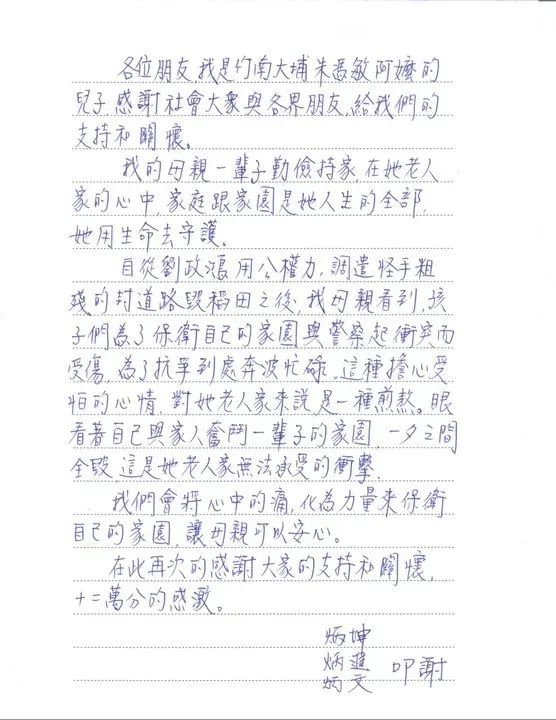 各位朋友,我是竹南大埔朱馮敏阿嬤的
兒子,感謝社會大眾與各界朋友,給我們的
支持和關懷。
我的母親一輩子勤儉持家,在她老人
家的心中,家庭跟家園是她人生的全部,
她用生命去守護。
自從劉政鴻用公權力,調遣怪手粗
殘的封道路毀稻田之後,我母親看到,孩
子們為了保衛自己的家園與警察起衝突而
受傷,為了抗爭到處奔波忙碌,這種擔心受
怕的心情,對她老人家來說是一種煎熬。眼
看著自己與家人奮鬥一輩子的家園,一夕之間
全毀,這是她老人家無法承受的衝擊.
我們會將心中的痛,化為力量來保衛
自己的家園,讓母親可以安心。
在此再次的感謝大家的支持和關懷,
十二萬分的感激。
炳坤
炳進 叩謝
炳文